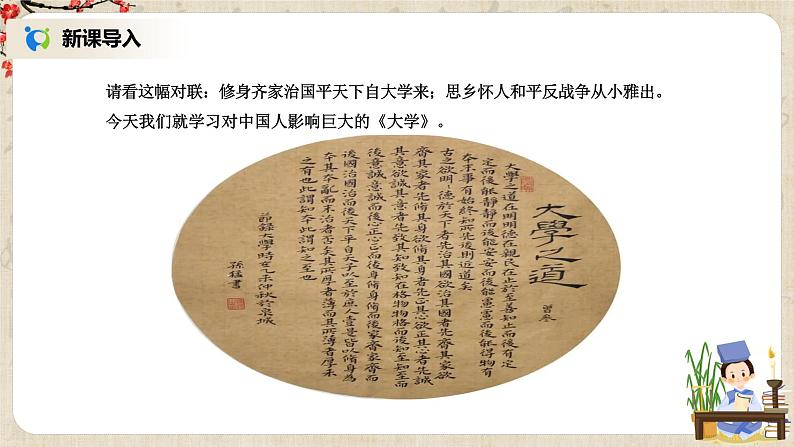 新课导入
请看这幅对联：修身齐家治国平天下自大学来；思乡怀人和平反战争从小雅出。
今天我们就学习对中国人影响巨大的《大学》。
大學之道
曾參
大學之道在明明德在親民在止於至善知止而后有定
定而後能靜靜而後能安安而後能慮慮而後能得物有
本末事有終始知所先後則近道矣
古之欲明明德於天下者先治其國欲治其國者先齊其家欲
齊其家者先脩其身欲脩其身者先正其心欲正其心者先誠
其意欲誠其意者先致其知致知在格物物格而后知至知至而
後意誠意誠而后心正心正而后身脩身脩而后家齊家齊而
後國治國治而后天下平自天子以至於庶人壹是皆以脩身為
本其本亂而末治者否矣其所厚者薄而其所薄者厚未
之有也此謂知本此謂知之至也
節錄大學時在乙未仲秋於泉城
孫猛書